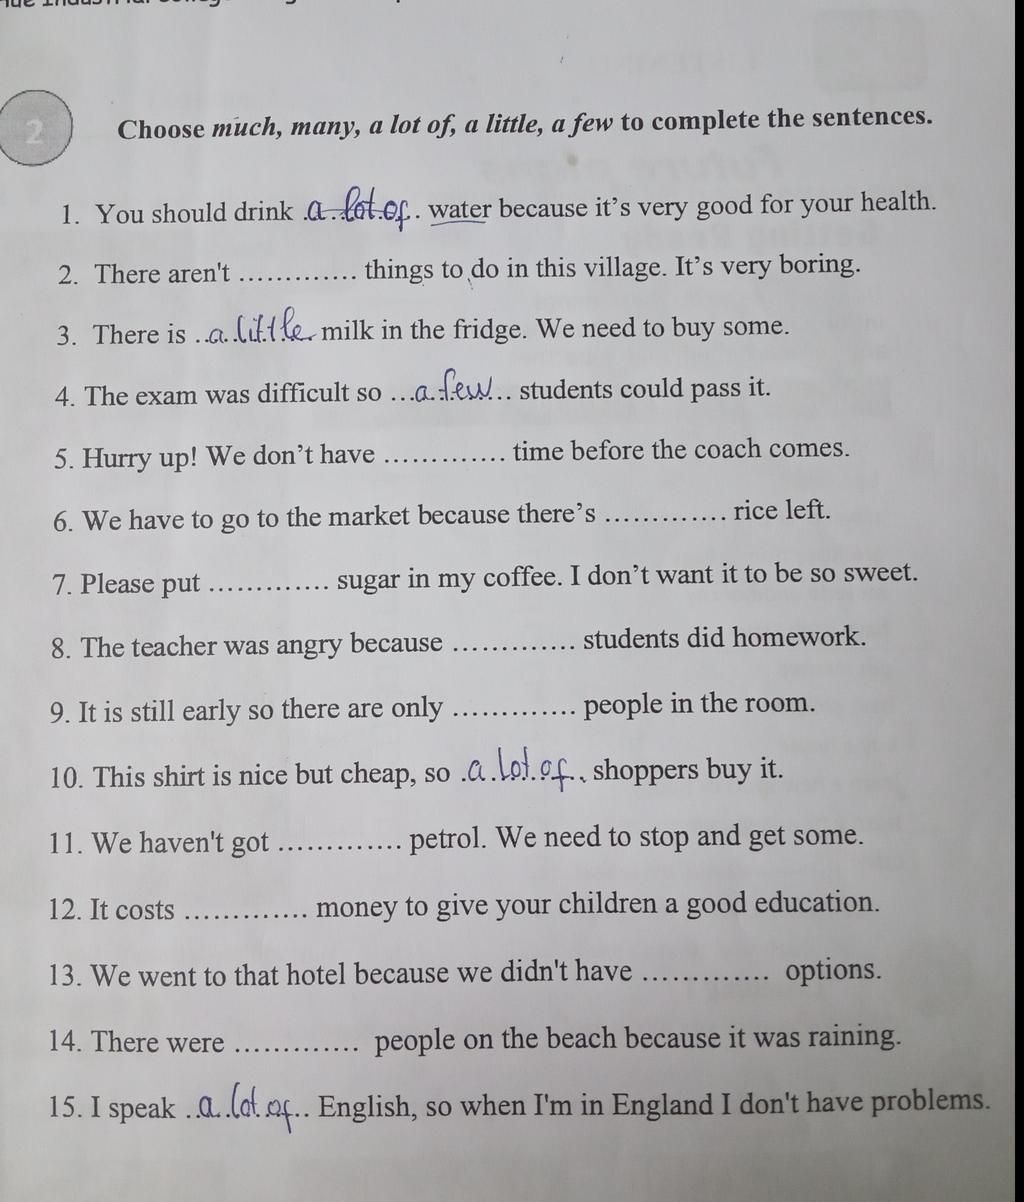 2
Choose much, many, a lot of, a little, a few to complete the sentences.
1. You should drink .a..lot.of.. water because it's very good for your health.
2. There aren't ............. things to do in this village. It's very boring.
3. There is ..a.little.. milk in the fridge. We need to buy some.
4. The exam was difficult so ...a.few... students could pass it.
5. Hurry up! We don't have ............. time before the coach comes.
6. We have to go to the market because there's ............. rice left.
7. Please put ............. sugar in my coffee. I don't want it to be so sweet.
8. The teacher was angry because ............. students did homework.
9. It is still early so there are only ............. people in the room.
10. This shirt is nice but cheap, so .a.lot.of.. shoppers buy it.
11. We haven't got ............. petrol. We need to stop and get some.
12. It costs ............. money to give your children a good education.
13. We went to that hotel because we didn't have ............. options.
14. There were ............. people on the beach because it was raining.
15. I speak ..a..lot.of.. English, so when I'm in England I don't have problems.